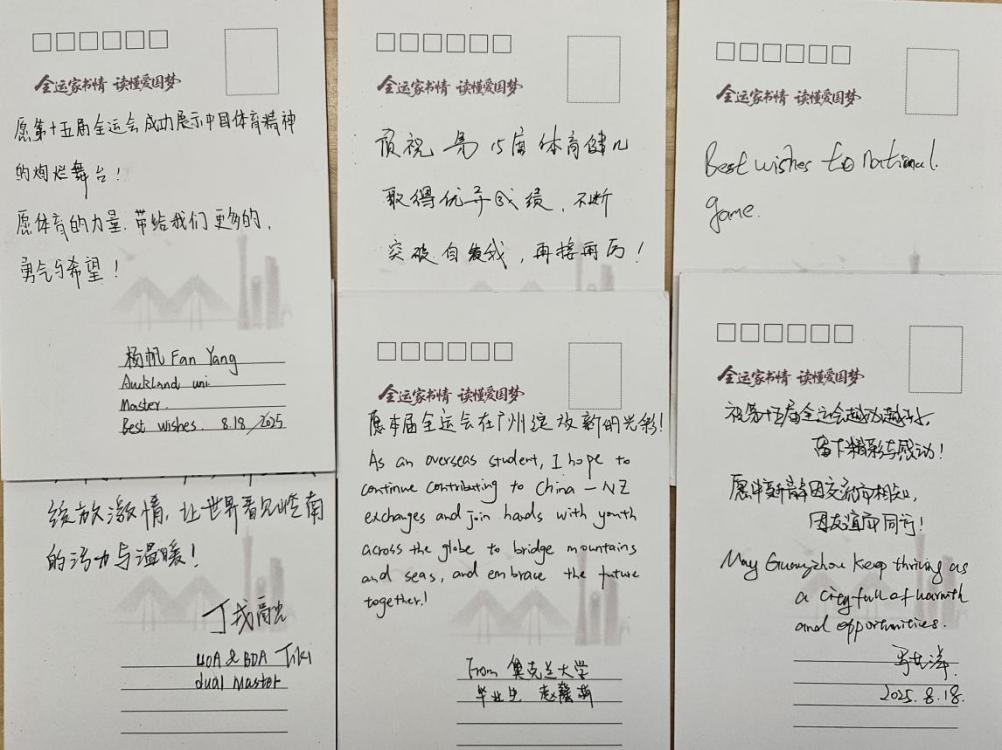 全运家书情 读懂爱国梦
愿第十五届全运会成功展示中国体育精神
的绚烂舞台！
愿体育的力量，带给我们更多的，
勇气与希望！
杨帆 Fan Yang
Auckland uni
Master.
Best wishes. 8.18/2025
全运家书情 读懂爱国梦
预祝 第15届体育健儿
取得优异成绩，不断
突破自我，再接再厉！
全运家书情 读懂爱国梦
Best wishes to National
game.
绽放激情，让世界看见岭南
的活力与温暖！
UOA & BDA Tiki
dual Master
全运家书情 读懂爱国梦
愿本届全运会在广州绽放新的光彩！
As an overseas student, I hope to
continue contributing to China - NZ
exchanges and join hands with youth
across the globe to bridge mountains
and seas, and embrace the future
together!
From 奥克兰大学
毕业生 赵
全运家书情 读懂爱国梦
祝第十五届全运会越办越好，
留下精彩与感动！
愿中新青年因交流而相知，
因友谊而同行！
May Guangzhou keep thriving as
a city full of warmth
and opportunities.
2025.8.18.